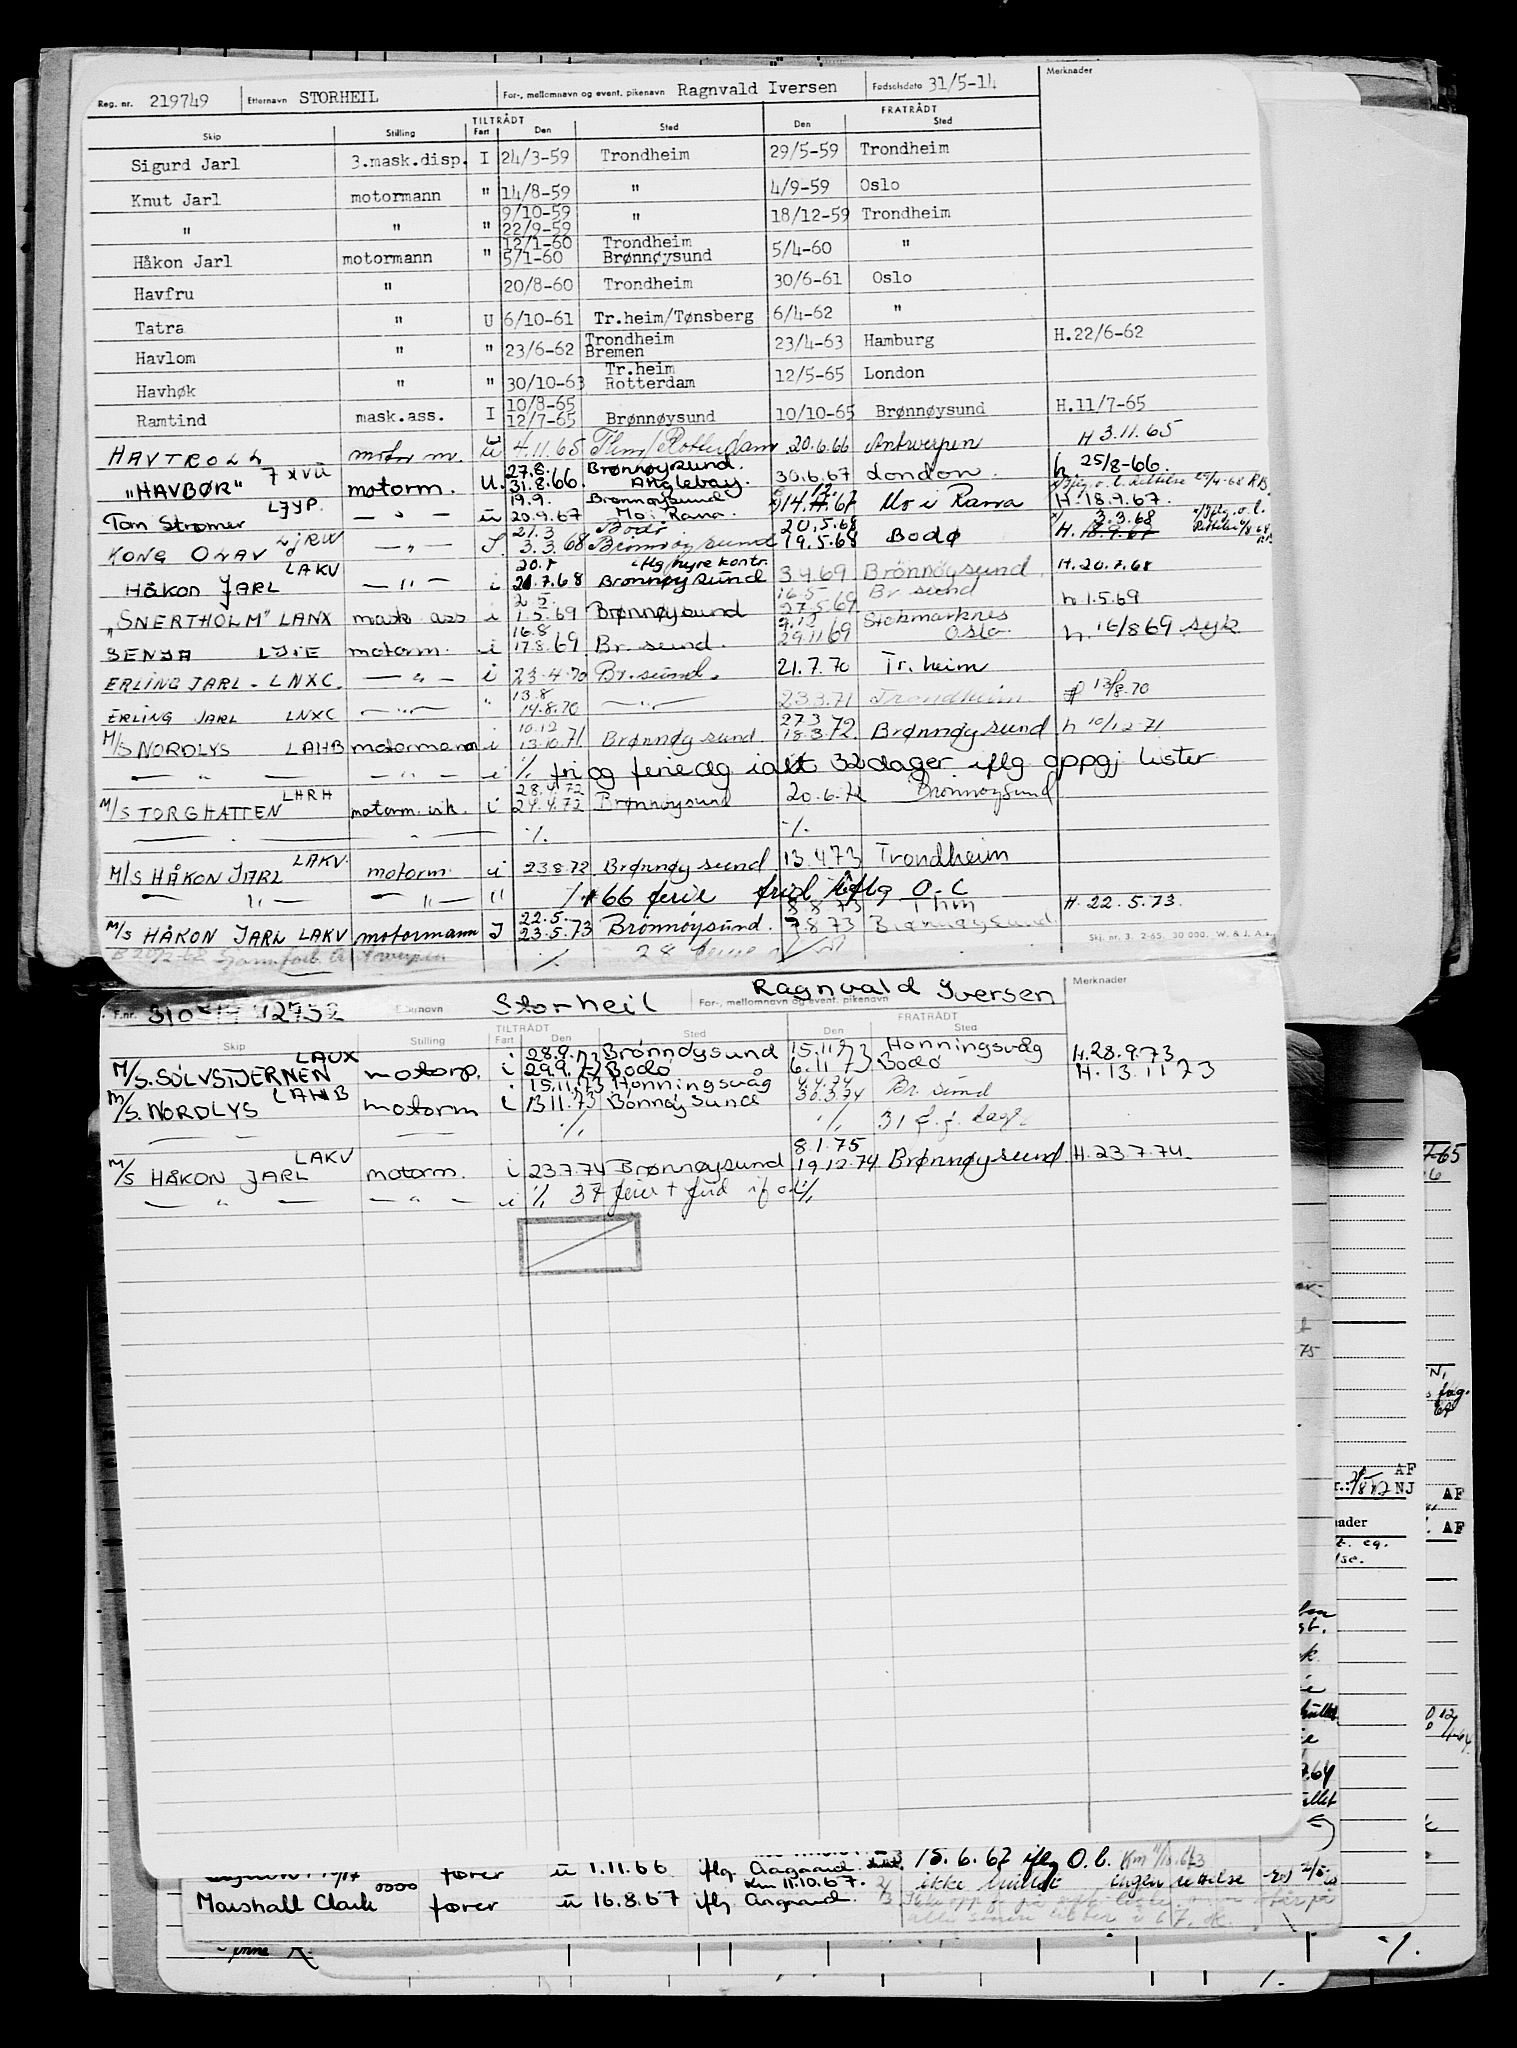 Reg. nr. 219749 Etternavn STORHEIL For-, mellomnavn og event. pikenavn Ragnvald Iversen Fødselsdato 31/5-14 Merknader
TILTRÅDT FRATRÅDT
Skip Stilling Fart Den Sted Den Sted
Sigurd Jarl 3.mask.disp. I 24/3-59 Trondheim 29/5-59 Trondheim
Knut Jarl motormann " 14/8-59 " 4/9-59 Oslo
9/10-59
" " " 22/9-59 " 18/12-59 Trondheim
12/1-60 Trondheim
Håkon Jarl motormann " 5/1-60 Brønnøysund 5/4-60 "
Havfru " 20/8-60 Trondheim 30/6-61 Oslo
Tatra " U 6/10-61 Tr.heim/Tønsberg 6/4-62 "
Trondheim
Havlom " " 23/6-62 Bremen 23/4-63 Hamburg H.22/6-62
Tr.heim
Havhøk " " 30/10-63 Rotterdam 12/5-65 London
10/8-65
Ramtind mask.ass. I 12/7-65 Brønnøysund 10/10-65 Brønnøysund H.11/7-65
HAVTROLL motor m. u 4.11.65 Thm/Rotterdam 20.6.66 Antwerpen H 3.11.65
27.8. Brønnøysund.
"HAVBØR" motorm. U. 31.8.66 Anglebay. 30.6.67 London. h 25/8-66.
19.9. Brønnøysund
Tom Strømer LJYP. — " — u 20.9.67 Mo i Rana. Mo i Rana H. 18.9.67.
21.3 Bodø 20.5.68 3.3.68
KONG OLAV LJRW — " — I 3.3.68 Brønnøysund 19.5.68 Bodø H. 18.9.67
20.7 iflg hyre kontr.
HÅKON JARL LAKV — " — i 21.7.68 Brønnøysund 3.4.69 Brönnöysund. H. 20.7.68
2.5. 16.5 Br sund
"SNERTHOLM" LANX mask ass i 1.5.69 Brønnøysund 27.5.69 Stokmarknes h 1.5.69
16.8 9.12
SENJA motorm. i 17.8.69. Br. sund. 29.11.69 Oslo. h. 16/8 69 syk
ERLING JARL - LNXC. — " — i 23.4.70 Br. sund. 21.7.70 Tr. heim
13.8
ERLING JARL LNXC — " — " 14.8.70 — " — 23.3.71 Trondheim 13/8.70
10.12 27.3
M/S NORDLYS LAHB motormann i 13.10.71 Brønnøysund 18.3.72. Brønnøysund h 10/12-71
— " — — " — i ./. fri og feriedg ialt 32 dager iflg oppgj lister
28.4.72
M/S TORGHATTEN LHRH motorm. vik. i 24.4.72 Brønnøysund 20.6.72 Brønnøysund
— " — ./. ./.
M/S HÅKON JARL LAKV. motorm. i 23.8.72 Brønnøysund 13.4.73 Trondheim
— " — — " — " ./. 66 ferie frid iflg O.L
22.5. 8.8.73 Thm
M/S HÅKON JARL LAKV motormann I 23.5.73 Brönnöysund. 7.8.73 Brønnøysund H. 22.5.73.
Skj. nr. 3. 2-65. 30 000. W. & J. A.s
./. 28 ferie
F.nr. Etternavn Storheil For-, mellomnavn og event. pikenavn Ragnvald Iversen Merknader
TILTRÅDT FRATRÅDT
Skip Stilling Fart Den Sted Den Sted
LAUX i 28.9.73 Brønnøysund 15.11.73 Honningsvåg H. 28.9.73
M/S. SØLVSTJERNEN motorp. i 29.9.73 Bodø 6.11.73 Bodø H. 13.11 73
LAHB 15.11.73 Honningsvåg 4.4.74
M/S. NORDLYS motorm i 13.11.73 Bönnöysund 30.3.74 Br. sund
— — — ./. ./. 31 f.f. dage
8.1.75
M/S HÅKON JARL LAKV motorm. i 23.7.74 Brønnøysund 19.12.74 Brønnøysund. H. 23.7.74.
— " — — " — i ./. 37 ferie + frid if o.l. ./.
fører u 1.11.66 iflg. Aagaard. 15.6.67 iflg O.l.
Km 11.10.67. ikke ingen rettelse
Marshall Clark 0000 fører u 16.8.67 iflg Aagaard.
AF
NJ
AF
AF